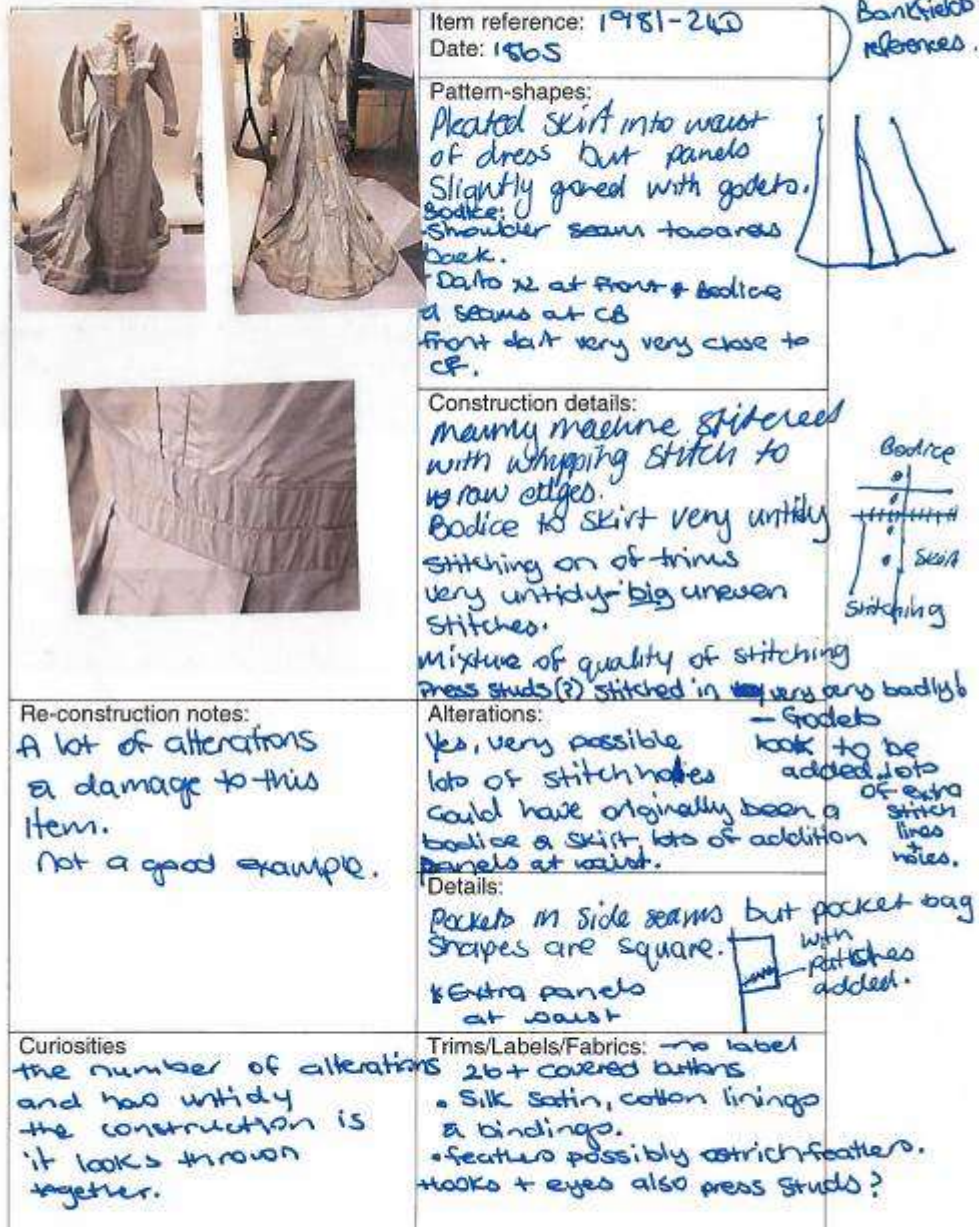 Item reference: 1981-240
Date: 1865
Bankfields
references.
Pattern-shapes:
Pleated skirt into waist
of dress but panels
slightly gored with godets.
Bodice:
-Shoulder seam towards
back.
- Darts x2 at front & Bodice
& seams at CB
front dart very very close to
CF.
Construction details:
mainly machine stitched
with whipping stitch to
raw edges.
Bodice to skirt very untidy
stitching on of trims
very untidy-big uneven
stitches.
Mixture of quality of stitching
Press studs(?) stitched in very very badly!
Bodice
Skirt
Stitching
Re-construction notes:
A lot of alterations
& damage to this
item.
Not a good example.
Alterations:
Yes, very possible
lots of stitch holes
Could have originally been a
bodice & skirt, lots of addition
panels at waist.
- Godets
look to be
added. lots
of extra
stitch
lines
+
holes.
Details:
Pockets in side seams but pocket bag
shapes are square.
* Extra panels
at waist
with
patches
added.
Curiosities
the number of alterations
and how untidy
the construction is
it looks thrown
together.
Trims/Labels/Fabrics: - no label
26+ covered buttons
• Silk satin, cotton linings
& bindings.
• feathers possibly ostrich feathers.
Hooks + eyes also press studs?